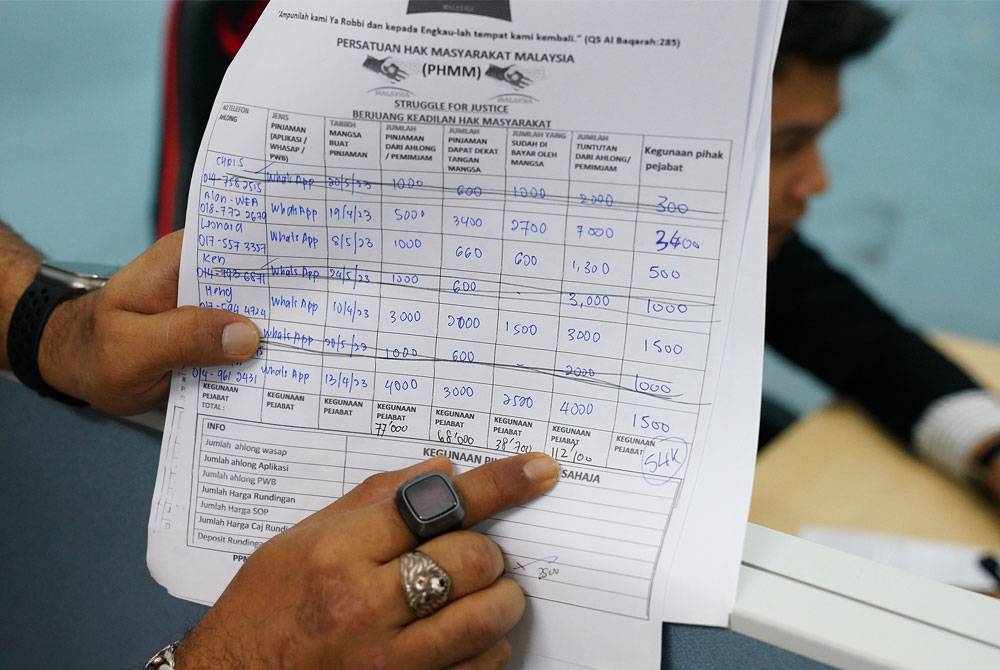 MALAYSIA
"Ampunilah kami Ya Robbi dan kepada Engkau-lah tempat kami kembali." (QS Al Baqarah:285)
PERSATUAN HAK MASYARAKAT MALAYSIA
(PHMM)
MALAYSIA MALAYSIA
STRUGGLE FOR JUSTICE
BERJUANG KEADILAN HAK MASYARAKAT
NO TELEFON AHLONG
JENIS PINJAMAN (APLIKASI / WHASAP / PWB)
TARIKH MANGSA BUAT PINJAMAN
JUMLAH PINJAMAN DARI AHLONG / PEMIMJAM
JUMLAH PINJAMAN DAPAT DEKAT TANGAN MANGSA
JUMLAH YANG SUDAH DI BAYAR OLEH MANGSA
JUMLAH TUNTUTAN DARI AHLONG/ PEMIMJAM
Kegunaan pihak pejabat
Chris
014-758 2515 WhatsApp 20/5/23 1000 600 1000 2000 300
Alan-WEA
018-772 2679 WhatsApp 19/4/23 5000 3400 2700 7000 3400
Leonara
017-557 3357 WhatsApp 8/5/23 1000 660 600 1,300 500
Ken
WhatsApp 24/5/23 1000 600 3,000 1000
Heng
017-594 4724 WhatsApp 10/4/23 3000 2000 1500 3000 1500
WhatsApp 20/5/23 1000 600 2000 1000
014-961 2431 WhatsApp 13/4/23 4000 3000 2500 4000 1500
KEGUNAAN PEJABAT TOTAL :
KEGUNAAN PEJABAT
KEGUNAAN PEJABAT
KEGUNAAN PEJABAT 77'000
KEGUNAAN PEJABAT 68'000
KEGUNAAN PEJABAT 38'700
KEGUNAAN PEJABAT 112'100
KEGUNAAN PEJABAT 54K
INFO KEGUNAAN SAHAJA
Jumlah ahlong wasap
Jumlah ahlong Aplikasi
Jumlah ahlong PWB
Jumlah Harga Rundingan
Jumlah Harga SOP
Jumlah Harga Caj
Deposit